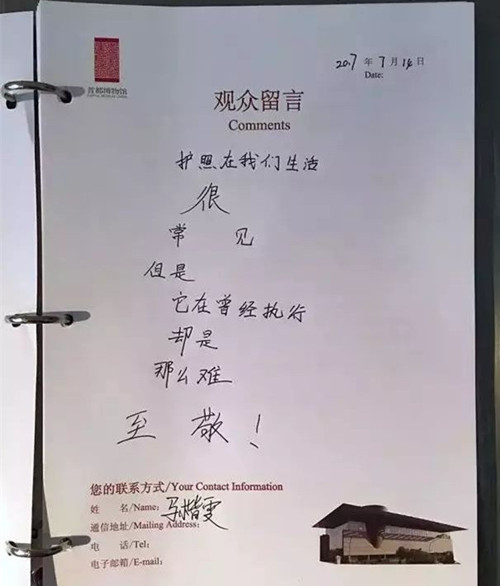 首都博物馆
2017 年 7 月 14 日
Date:
观众留言
Comments
护照在我们生活
很
常 见
但是
它在曾经执行
却是
那么难
至 敬！
您的联系方式/Your Contact Information
姓 名/Name:
通信地址/Mailing Address:
电 话/Tel:
电子邮箱/E-mail: